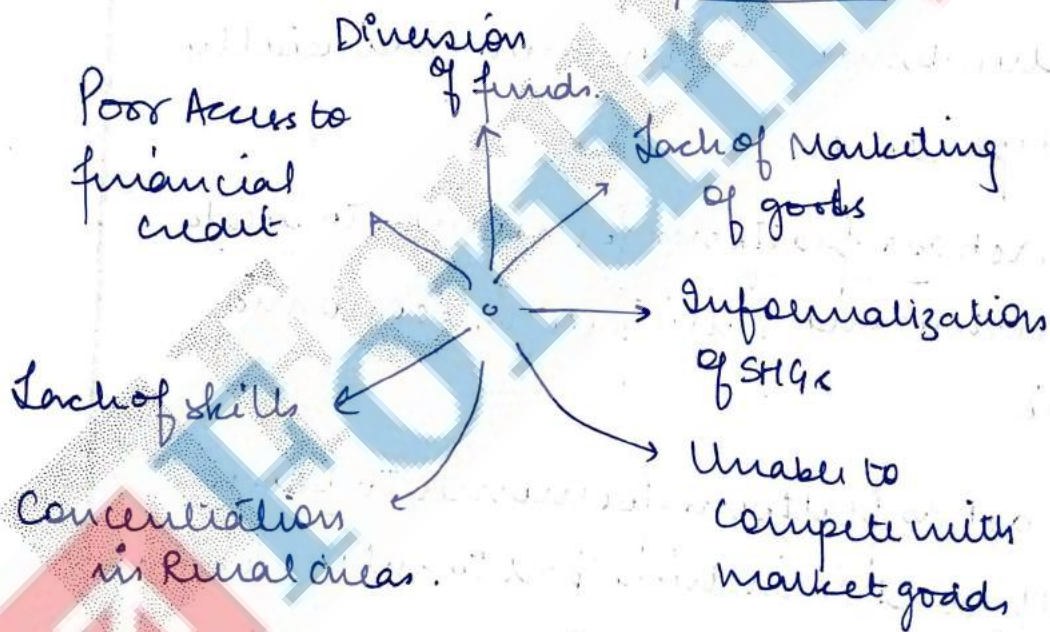 Diversion
of funds.
Poor Access to
financial
credit
Lack of Marketing
of goods
Informalization
of SHGs
Lack of skills
Unable to
Compete with
market goods
Concentration
in Rural areas.
Forum